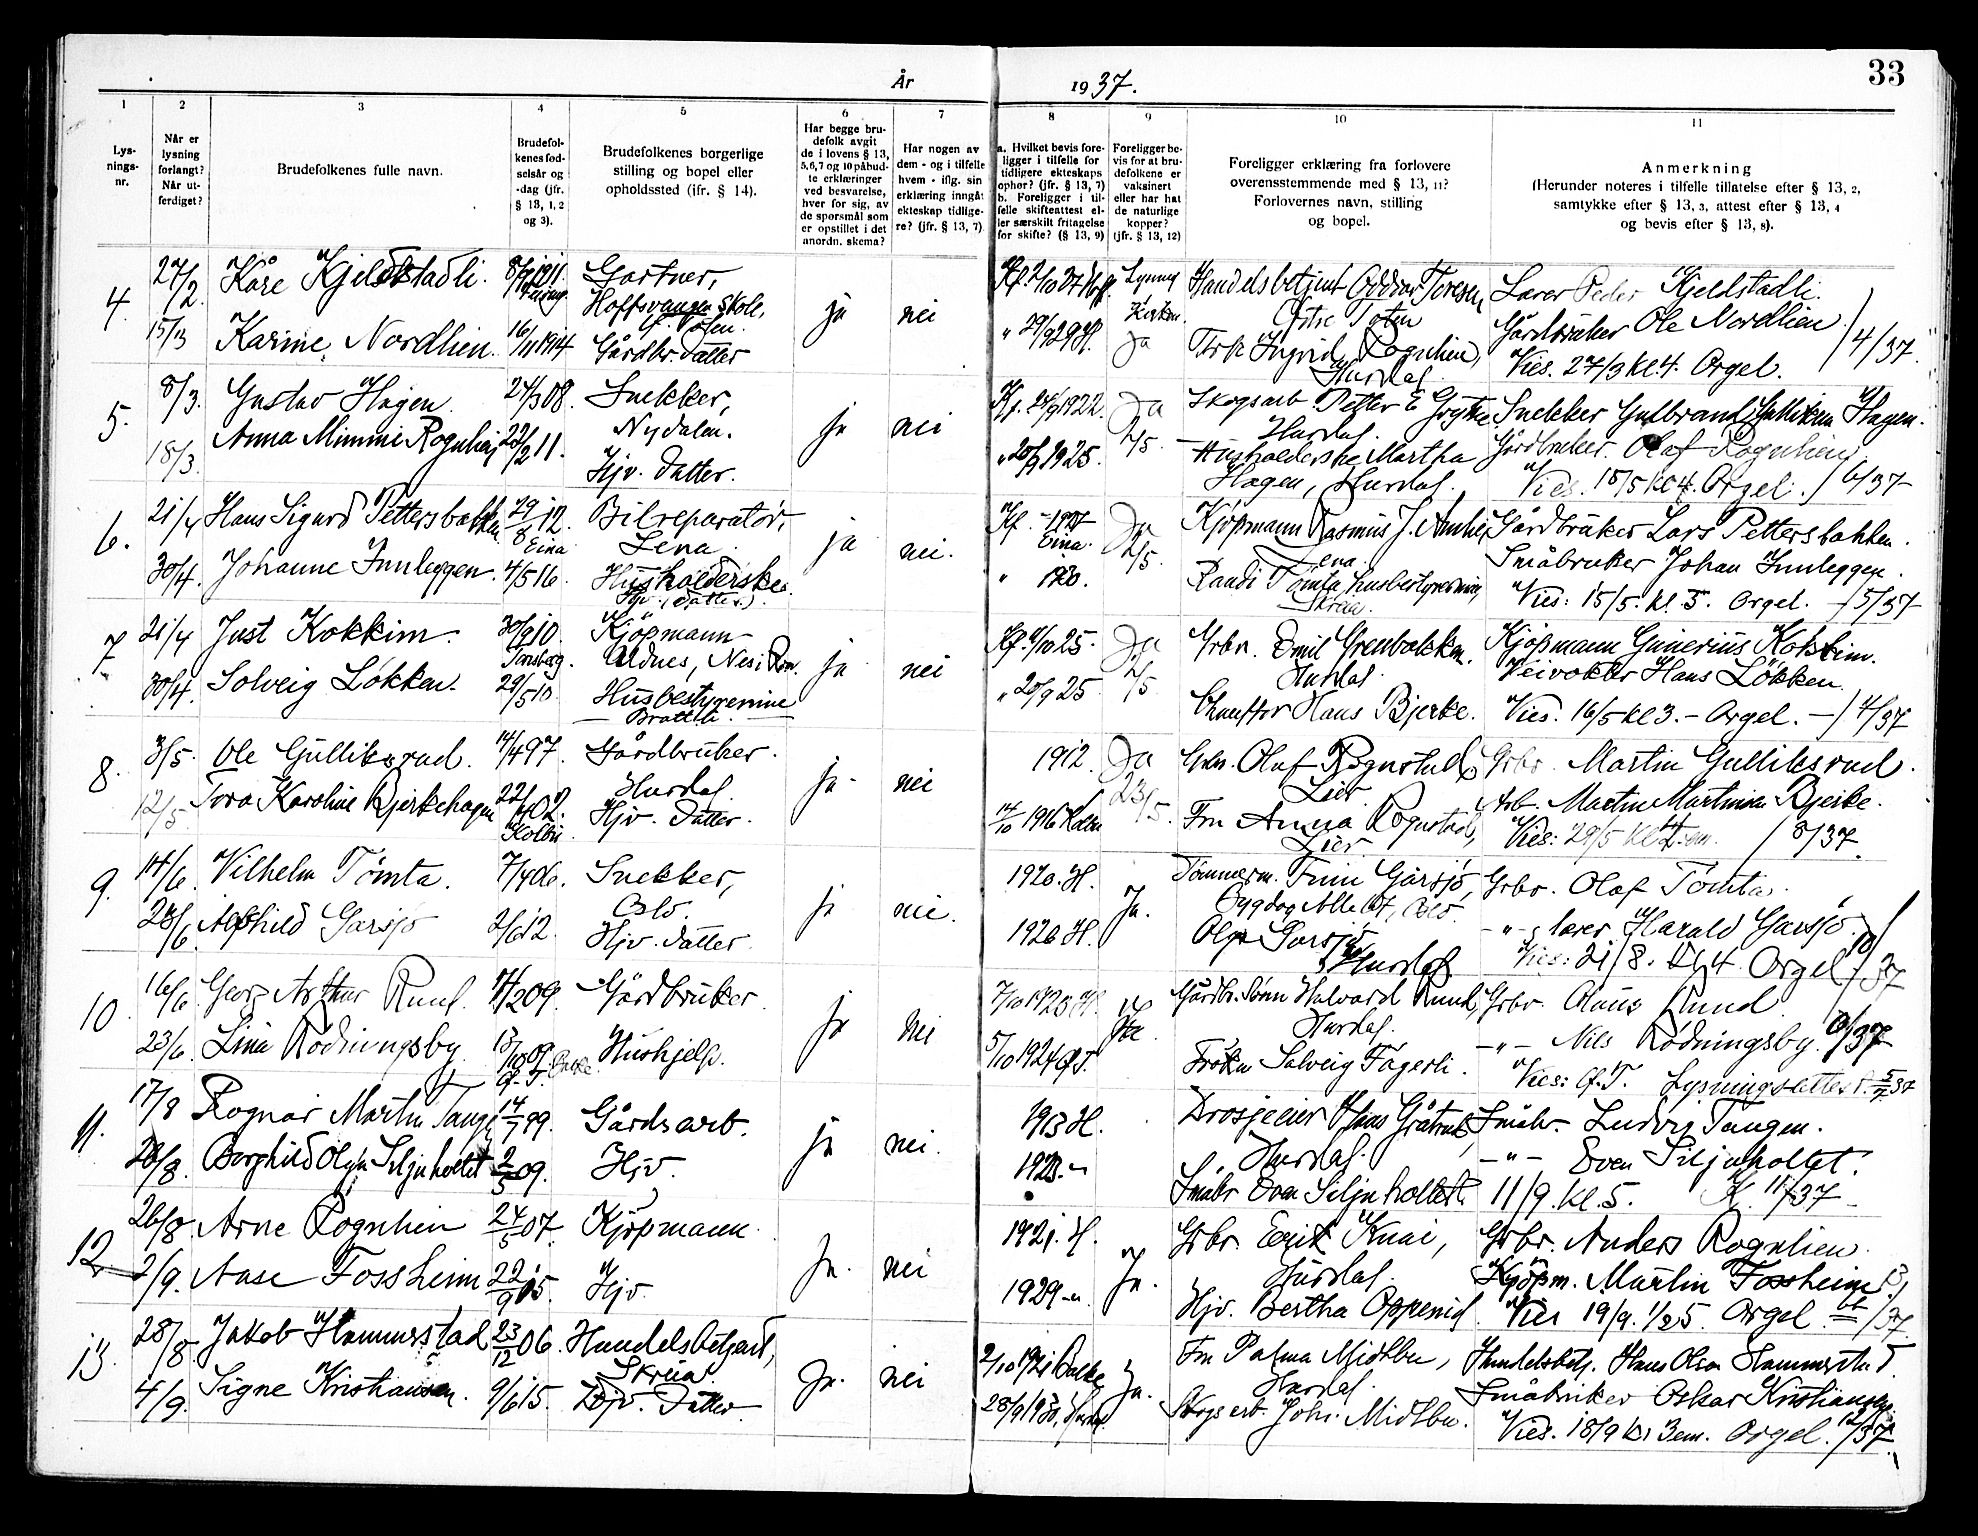 År 1937.
33
1
2
3
4
5
6
7
8
9
10
11
Lys-
nings-
nr.
Når er
lysning
forlangt?
Når ut-
ferdiget?
Brudefolkenes fulle navn.
Brudefol-
kenes fød-
selsår og
-dag (jfr.
§ 13, 1, 2
og 3).
Brudefolkenes borgerlige
stilling og bopel eller
opholdssted (ifr. § 14).
Har begge bru-
defolk avgit
de i lovens § 13,
5, 6, 7 og 10 påbud-
te erklæringer
ved besvarelse,
hver for sig, av
de spørsmål som
er opstillet i det
anordn. skema?
Har nogen av
dem - og i tilfelle
hvem - iflg. sin
erklæring inngåt
ekteskap tidlige-
re? (jfr. § 13, 7)
a. Hvilket bevis fore-
ligger i tilfelle for
tidligere ekteskaps
ophør? (jfr. § 13, 7)
b. Foreligger i til-
felle skifteattest el-
ler særskilt fritagelse
for skifte? (§ 13, 9)
Foreligger be-
vis for at bru-
defolkene er
vaksinert
eller har hat
de naturlige
kopper?
(jfr. § 13, 12)
Foreligger erklæring fra forlovere
overensstemmende med § 13, 11?
Forlovernes navn, stilling
og bopel.
Anmerkning
(Herunder noteres i tilfelle tillatelse efter § 13, 2,
samtykke efter § 13, 3, attest efter § 13, 4
og bevis efter § 13, 8).
4
27/2
Kåre Kjeldstadli.
Gartner,
Hoffsvangen skole,
Ø. Toten.
ja
nei
Handelsbetjent Oddvar Toresen,
Østre Toten
Lærer Peder Kjeldstadli.
15/3
Karine Nordlien.
16/11 1914
Gårdbr. datter
" 29/9 29 H.
Ja
Frk Ingrid Rognlien,
Hurdal
Gårdbruker Ole Nordlien
Vies. 27/3 kl. 4. Orgel. / 4/37.
5.
8/3.
Gustav Hagen.
Snekker,
Nydalen.
ja
nei
Kf. 24/9 1922.
Ja
2/5.
Skogsarb. Petter E Grytke
Hurdal.
Snekker Gulbrand Gulliksen Hagen.
18/3.
Anna Mimmi Rognlien
22/2 11.
Hjv. datter.
" 20/9 1925.
Husholderske Martha
Hagen, Hurdal.
Gårdbruker. Olaf Rognlien
Vies. 15/5 kl 4. Orgel. / 6/37
6.
21/4
Hans Sigurd Pettersbakken
29/8 12.
Eina
Bilreparatør,
Lena.
ja
nei.
Kf. - 1927
Eina.
Ja
2/5.
Kjöpmann Rasmus J.
Lena.
Gårdbruker Lars Pettersbakken.
30/4.
Johanne Innleggen.
4/5 16.
Husholderske.
Hjv. (datter.)
" 1930.
Randi Tömta, husbestyrerinne,
Skreia.
Småbruker Johan Innleggen.
Vies: 15/5. kl. 5. Orgel. - / 5/37
7.
21/4
Just Kokkim.
30/9 10.
Tønsberg.
Kjöpmann
Aldnes, Nes i Rom.
ja
nei
Kf. 4/10 25.
Ja
2/5
Grbr. Emil Grenbakken.
Hurdal
Kjöpmann Gunerius Kokkim.
30/4.
Solveig Løkken.
29/5 10.
Husbestyrerinne
Brattli.
" 20/9 25.
Chauffør Hans Bjerke.
Veivokter Hans Løkken.
Vies. 16/5 kl 3. - Orgel. - / 4/37
8.
3/5.
Ole Gulliksrud.
14/4 97.
Gårdbruker.
Hurdal
ja -
nei
1912.
Ja
23/5.
Grbr. Olaf Rognstad,
Lier.
Grbr. Martin Gulliksrud.
12/5
Tora Karoline Bjerkehagen
22/4 02.
Kolbu
Hjv. datter.
14/10 1916 Kolbu
Fru Anna Rognstad,
Lier
Arb. Martin Martinsen Bjerke.
Vies: 29/5 / 8/37.
9.
14/6
Vilhelm Tömta.
7/4 06.
Snekker,
Oslo.
ja
nei.
1920. H.
Ja.
Tømmerm. Finn Garsjö,
Bygdøy Alle, Oslo.
Grbr. Olaf Tömta.
23/6
Alfhild Garsjö
2/6 12.
Hjv. datter.
1926 H.
Olga Garsjö
Hurdal
- " - lærer Harald Garsjö.
Vies: 21/8. kl 4. Orgel / 10/37
10.
16/6
Georg Arthur Ruud.
11/2 09.
Gårdbruker.
ja
nei
7/10 1923 H.
Ja
Gårdbr.sønn Halvard Ruud,
Hurdal.
Grbr. Olaus Ruud
23/6
Lina Rödningsby
13/10 09.
Ø. T.
Hushjelp.
5/10 1924 Ø.T.
Frøken Solveig Fagerli.
- " - Nils Rødningsby.
Vies: Ø. T. Lysningsattest. 5/7 37
11.
17/8
Ragnar Martin Tangen
14/7 99.
Gårdsarb.
ja
nei.
1913 H.
Drosjeeier Hans Gråtrud,
Hurdal.
Småbr. Ludvig Tangen.
28/8.
Borghild Olga Siljuholtet
2/5 09.
Hjv.
1923. "
Småbr Even Siljuholtet.
- " - Even Siljuholtet.
11/9. kl. 5. K. 11/37
12
26/8
Arne Rognlien
24/5 07.
Kjöpmann.
Ja.
nei
1921. H.
Ja.
Grbr. Erik Knai,
Hurdal.
Grbr. Anders Rognlien.
2/9.
Aase Fossheim
22/9 05.
Hjv.
1929 - "
Hjv. Bertha Oppenid.
Kjöpm. Martin Fossheim.
Vies 19/9. 1/2 5. Orgel. 13/37.
13.
28/8.
Jakob Hammerstad
23/12 06.
Handelsbetjent,
Skreia.
Ja.
nei
2/10 1921 Balke
Ja.
Fru Palma Midtbu,
Hurdal.
Handelsbetj. Hans Olsen Hammerstad.
4/9.
Signe Kristiansen.
9/6 15.
Hjv. datter
28/9 1930, Hurdal
Skogsarb. Joh. Midtbu.
Småbruker Oskar Kristiansen.
Vies. 18/9 kl 3 em. Orgel. 12/37.